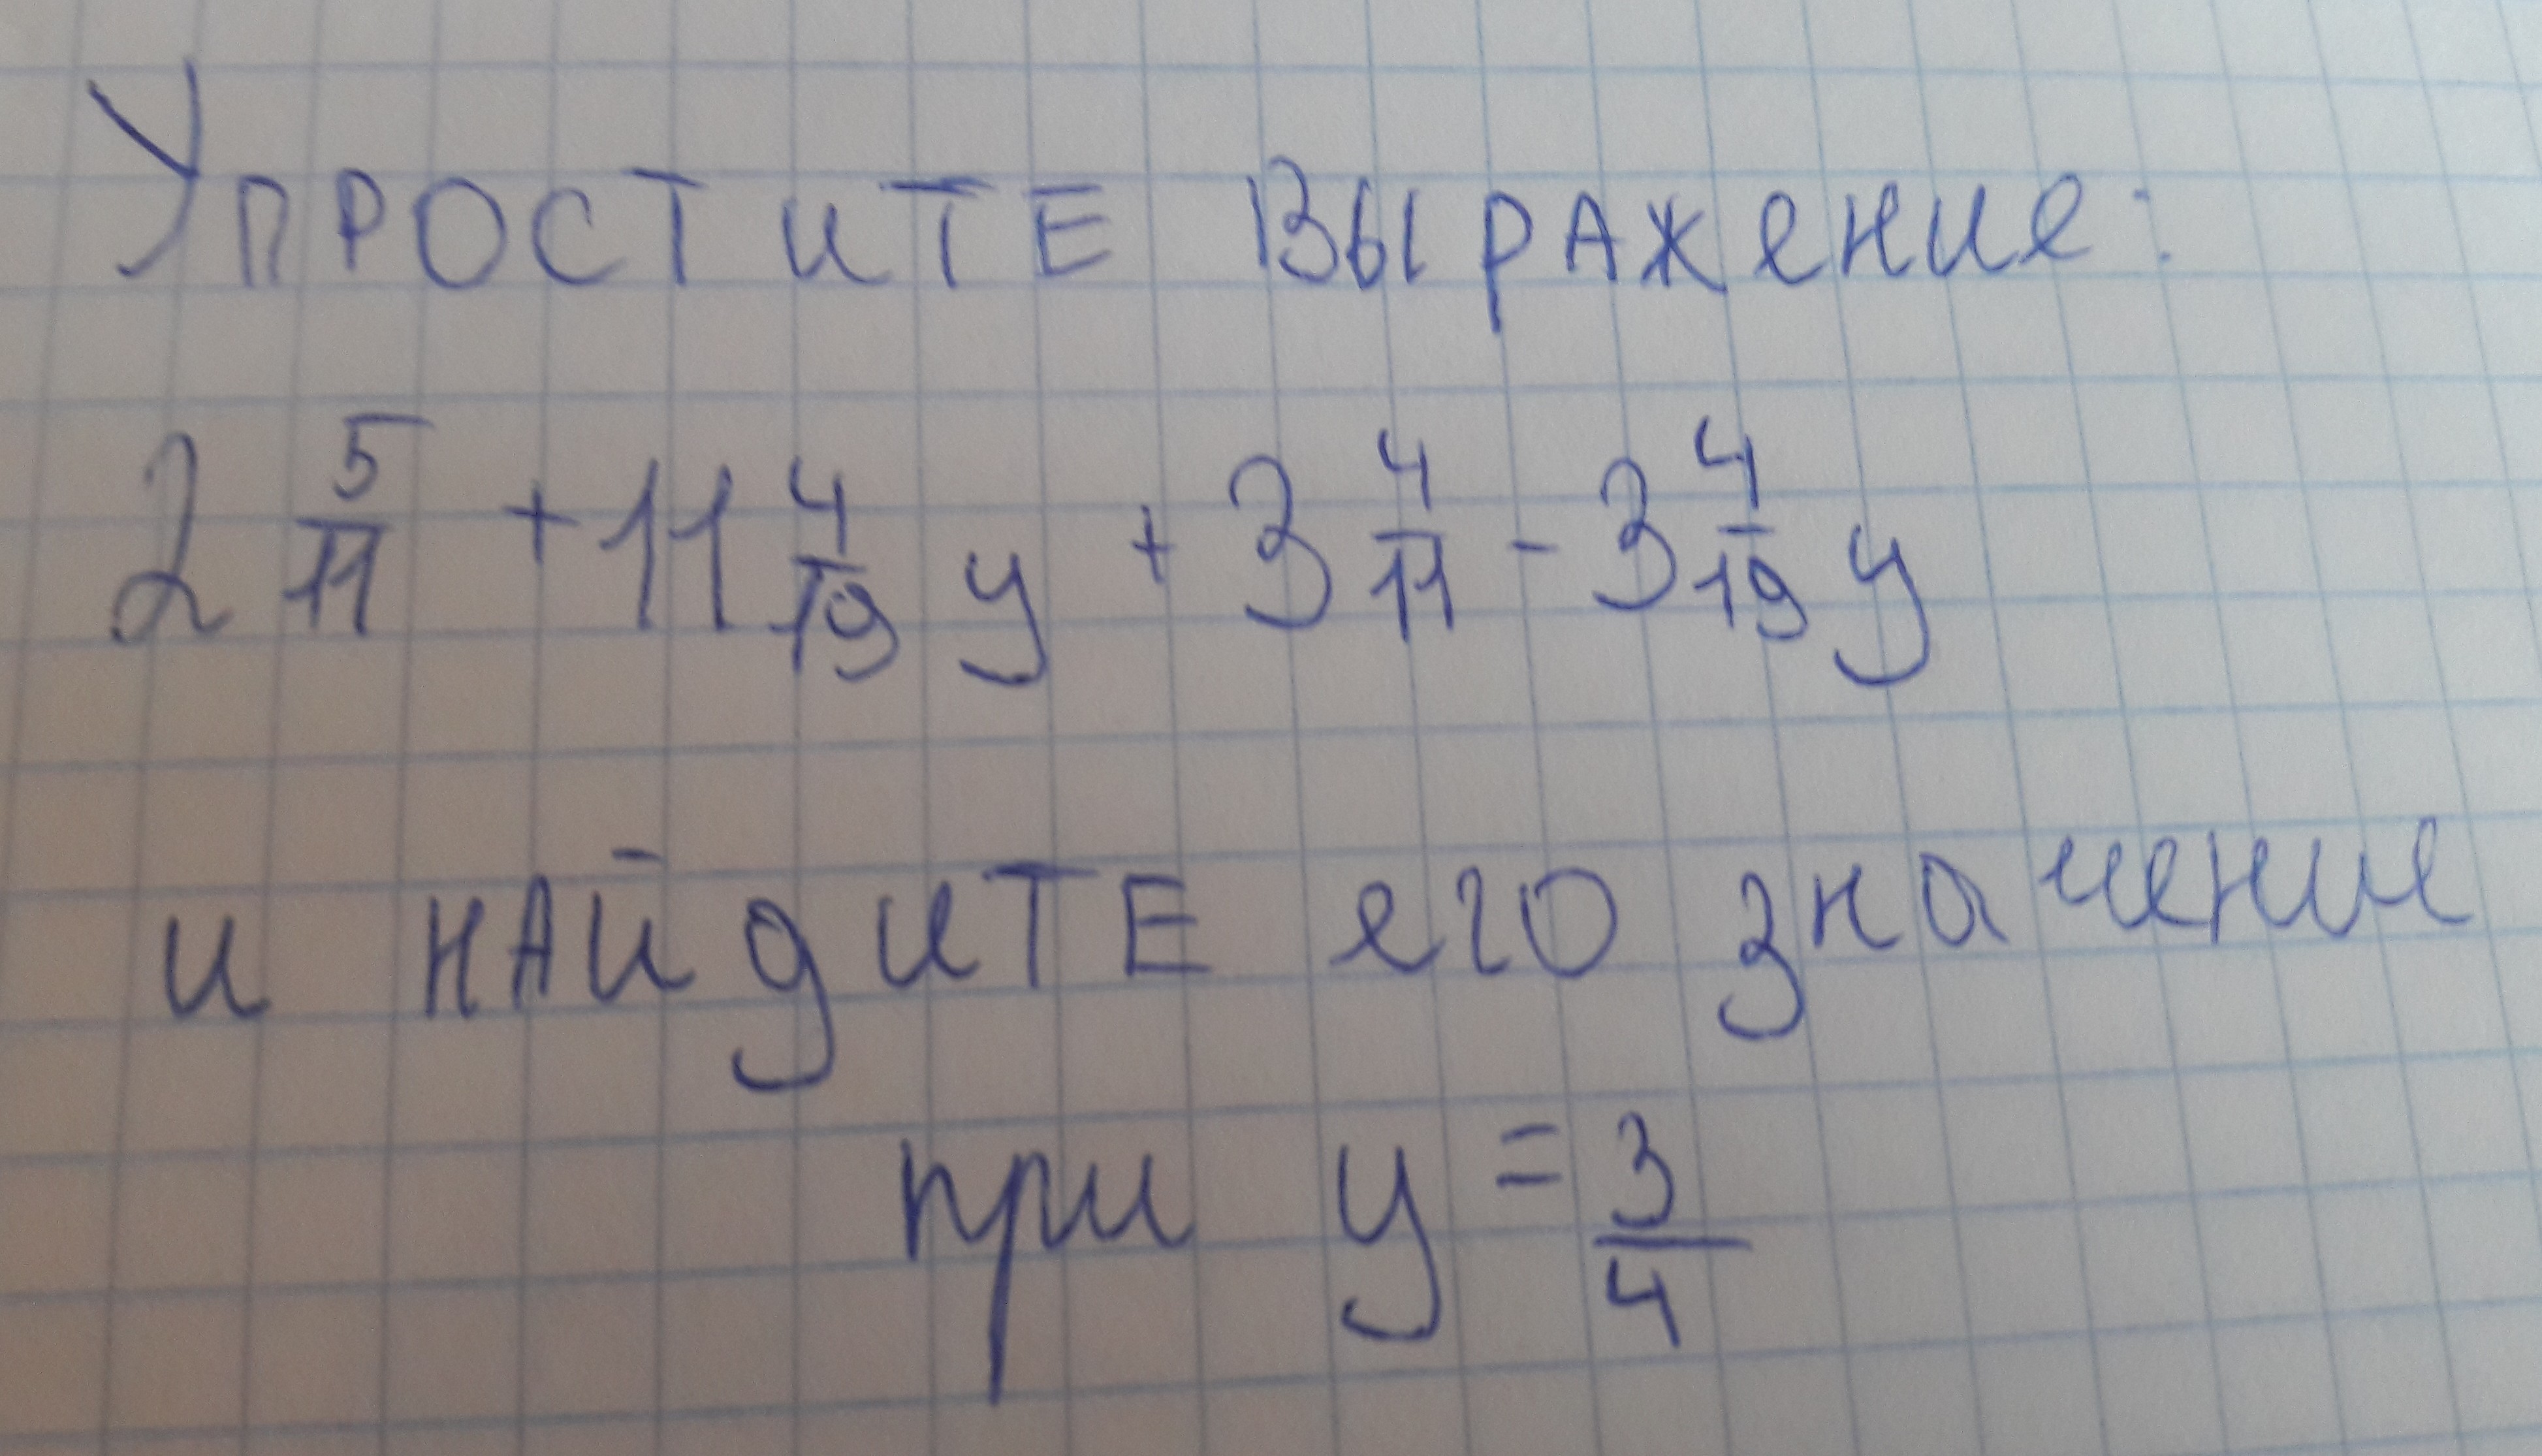 Упростите выражение:
2 5/11 + 11 4/19 y + 3 4/11 - 3 4/19 y
и найдите его значение
при y = 3/4